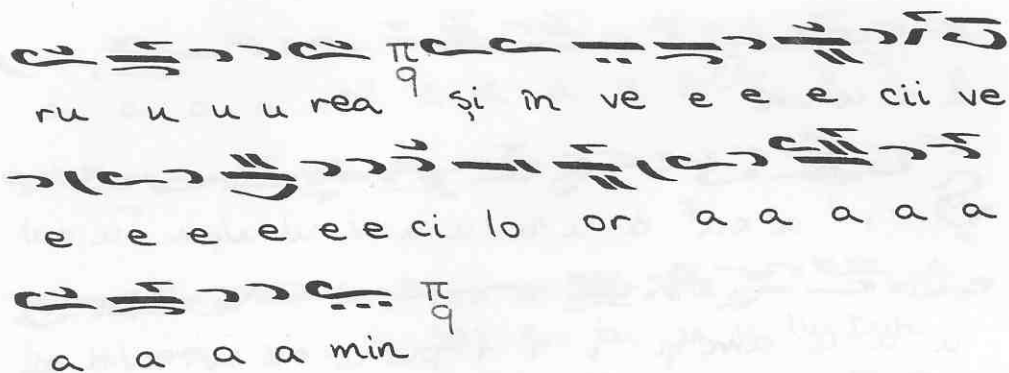 ru u u u rea π q și în ve e e e cii ve
e e e e e e ci lo or a a a a a
a a a a min π q